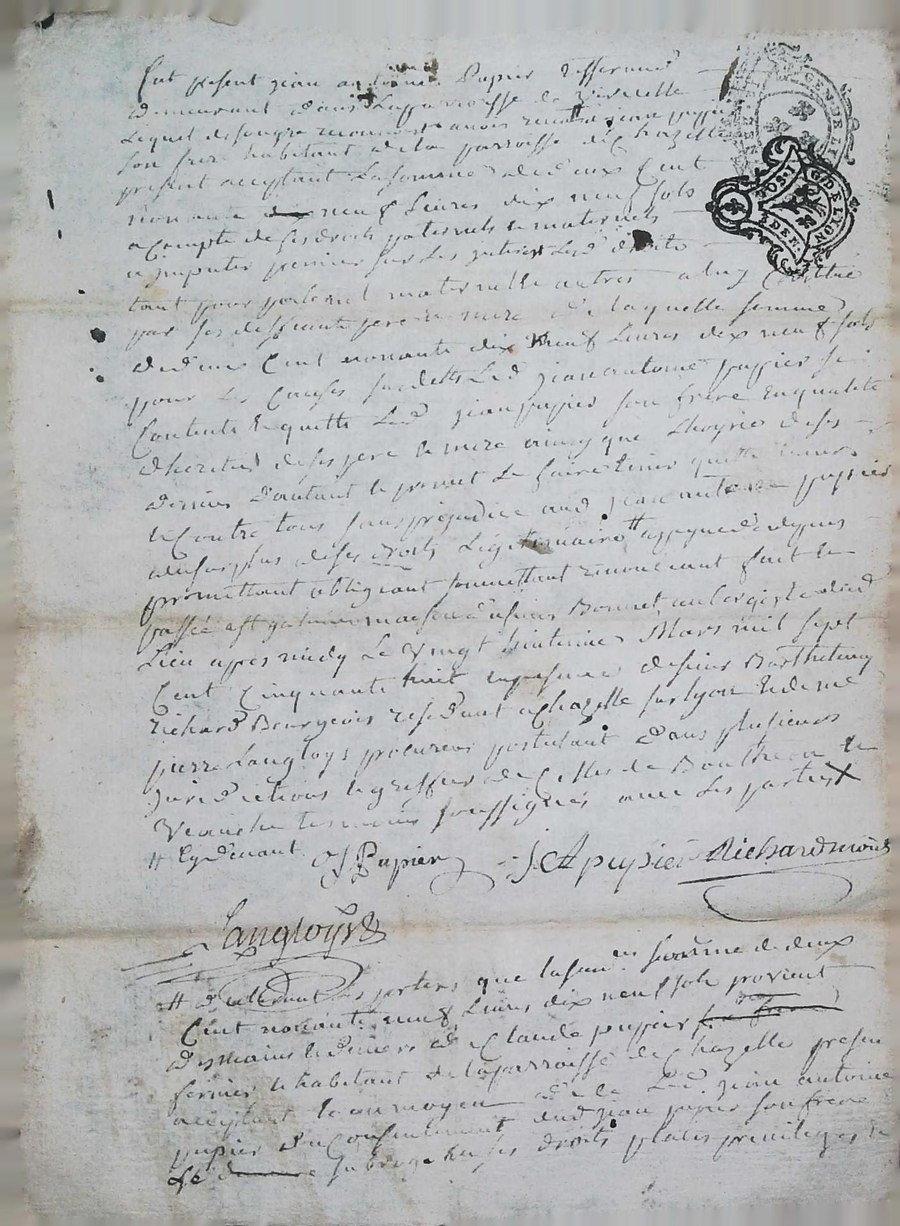 GENER. DE LION
Fut présent jean antoine Papier
demeurant dans la parroisse de
Lequel de son gré reconnoit avoir jean pupier
son frere habitant de la parroisse de Chazelle
présent acceptant La somme de deux Cent
nonante neuf Livres dix neuf sols
a Compte de ses droits paternels & maternels
a imputer premier sur Les
tant pour paternel maternelle autres a luy
par ses deffunts pere & mere de laquelle somme
de deux Cent nonante neuf Livres dix neuf sols
pour Les Causes susdittes Led jean antoine pupier se
Contente & quitte Led jean pupier son frere En qualité
d'heritier de ses pere & mere ainsy que L'hoyrie de ses
derniers d'autant & promet Le faire tenir quitte envers
& Contre tous sans préjudice aud jean antoine pupier
du surplus de ses droits Légitimaire #
promettant obligeant soumettant renonceant fait &
passé a St galmier maison du sieur Bonnet aubergiste dud
Lieu apres midy Le Vingt mars mil sept
Cent Cinquante huit en presence de sieur Barthelemy
Richard Bourgeois residant a Chazelle sur Lyon & de me
pierre Langloys procureur postulant dans plusieurs
Juridictions & greffier de Celles de Bouthéon &
Veauche temoins soussignés avec Les parties X
# Cy devant J Pupier J A pupier Richard
Langloys
# declarant Les parties que La susd somme de deux
Cent nonante neuf Livres dix neuf sols provient
des mains & deniers de Claude pupier
fermier & habitant de La parroisse de Chazelle présent
acceptant & au moyen de Ce Led jean antoine
pupier du Consentement dud jean pupier son frere
Le subroge En ses droits places privileges &